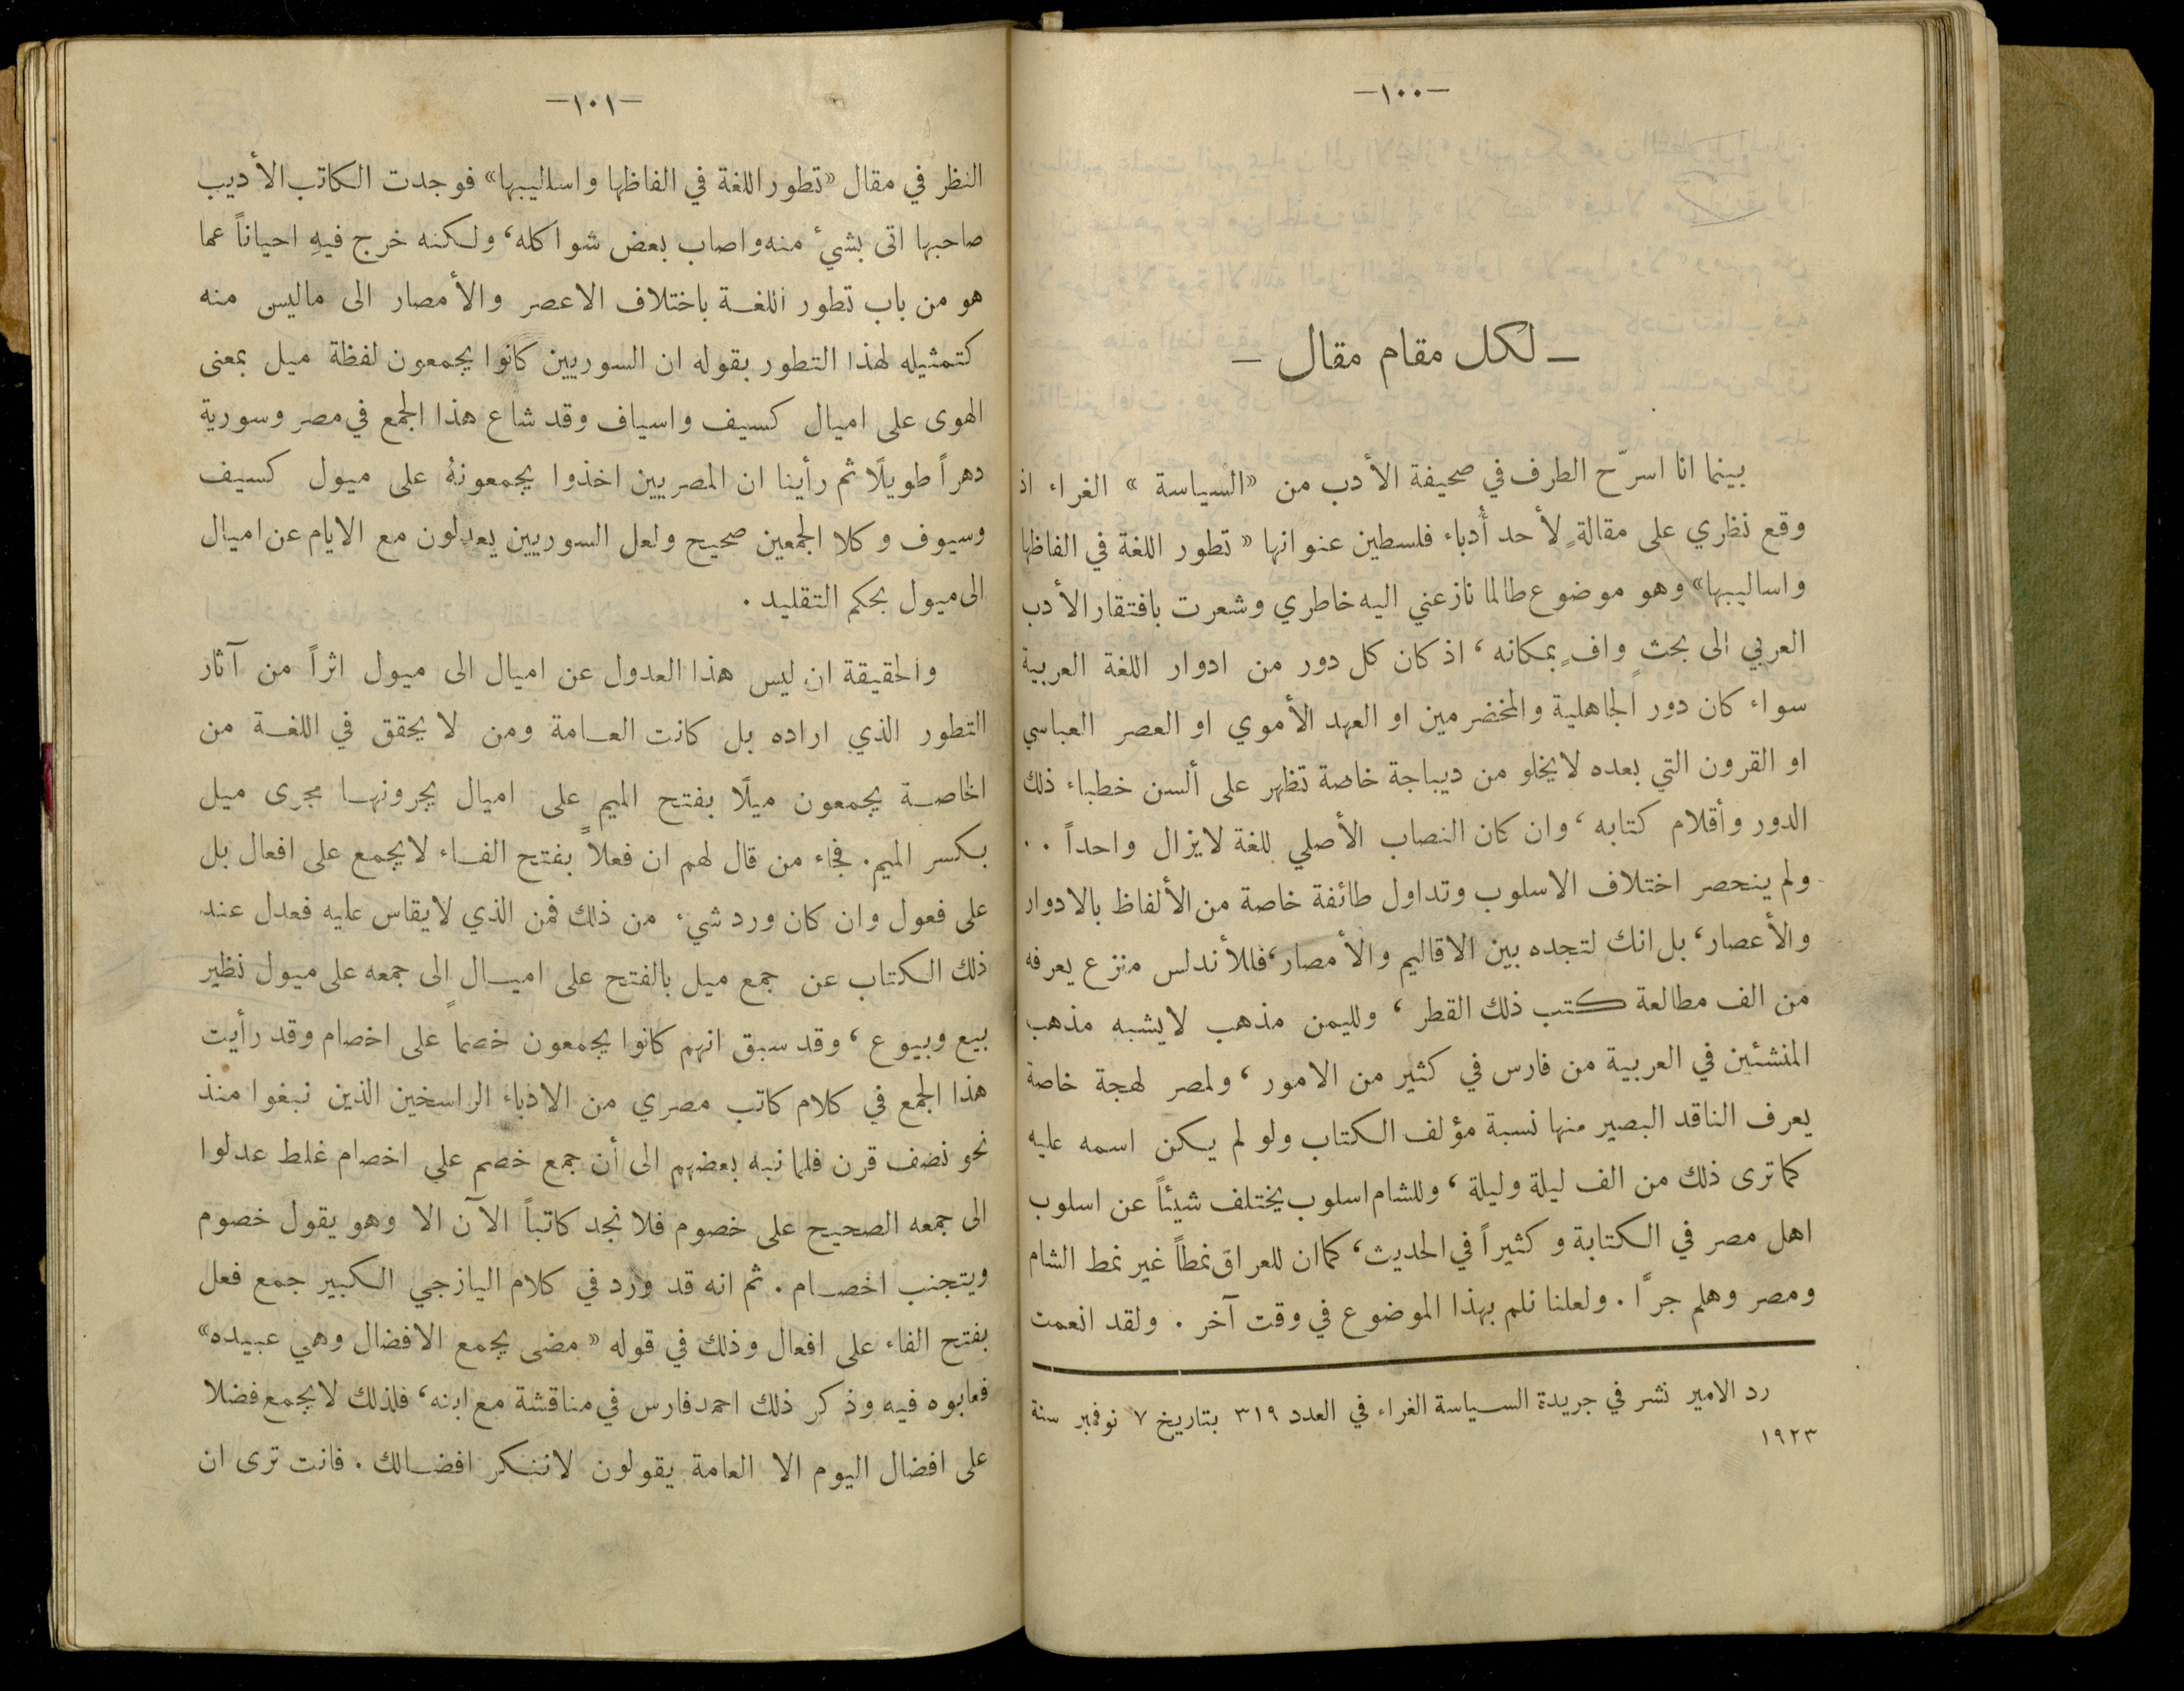 —١٠٠—
— لكل مقام مقال —
بينما انا اسرّح الطرف في صحيفة الأدب من «السياسة» الغراء اذ
وقع نظري على مقالةٍ لأحد أدباء فلسطين عنوانها «تطور اللغة في الفاظها
واساليبها» وهو موضوع طالما نازعني اليه خاطري وشعرت بافتقار الأدب
العربي الى بحثٍ وافٍ بمكانه، اذ كان كل دور من ادوار اللغة العربية
سواء كان دور الجاهلية والمخضرمين او العهد الأموي او العصر العباسي
او القرون التي بعده لا يخلو من ديباجة خاصة تظهر على ألسن خطباء ذلك
الدور وأقلام كتابه، وان كان النصاب الأصلي للغة لايزال واحداً . .
ولم ينحصر اختلاف الاسلوب وتداول طائفة خاصة من الألفاظ بالادوار
والأعصار، بل انك لتجده بين الاقاليم والأمصار، فللأندلس منزع يعرفه
من الف مطالعة كتب ذلك القطر، ولليمن مذهب لايشبه مذهب
المنشئين في العربية من فارس في كثير من الامور، ولمصر لهجة خاصة
يعرف الناقد البصير منها نسبة مؤلف الكتاب ولو لم يكن اسمه عليه
كما ترى ذلك من الف ليلة وليلة، وللشام اسلوب يختلف شيئاً عن اسلوب
اهل مصر في الكتابة وكثيراً في الحديث، كما ان للعراق نمطاً غير نمط الشام
ومصر وهلم جرَّا . ولعلنا نلم بهذا الموضوع في وقت آخر . ولقد انعمت
رد الامير نشر في جريدة السياسة الغراء في العدد ٣١٩ بتاريخ ٧ نوفمبر سنة
١٩٢٣
—١٠١—
النظر في مقال «تطور اللغة في الفاظها واساليبها» فوجدت الكاتب الأديب
صاحبها اتى بشيء منه واصاب بعض شواكله، ولكنه خرج فيهِ احياناً عما
هو من باب تطور اللغة باختلاف الاعصر والأمصار الى ماليس منه
كتمثيله لهذا التطور بقوله ان السوريين كانوا يجمعون لفظة ميل بمعنى
الهوى على اميال كسيف واسياف وقد شاع هذا الجمع في مصر وسورية
دهراً طويلًا ثم رأينا ان المصريين اخذوا يجمعونهُ على ميول كسيف
وسيوف وكلا الجمعين صحيح ولعل السوريين يعدلون مع الايام عن اميال
الى ميول بحكم التقليد .
والحقيقة ان ليس هذا العدول عن اميال الى ميول اثراً من آثار
التطور الذي اراده بل كانت العامة ومن لا يحقق في اللغة من
الخاصة يجمعون ميلًا بفتح الميم على اميال يجرونها مجرى ميل
بكسر الميم. فجاء من قال لهم ان فعلاً بفتح الفاء لايجمع على افعال بل
على فعول وان كان ورد شيء من ذلك فمن الذي لايقاس عليه فعدل عند
ذلك الكتاب عن جمع ميل بالفتح على اميال الى جمعه على ميول نظير
بيع وبيوع، وقد سبق انهم كانوا يجمعون خصماً على اخصام وقد رأيت
هذا الجمع في كلام كاتب مصري من الادباء الراسخين الذين نبغوا منذ
نحو نصف قرن فلما نبه بعضهم الى أن جمع خصم على اخصام غلط عدلوا
الى جمعه الصحيح على خصوم فلا نجد كاتباً الآن الا وهو يقول خصوم
ويتجنب اخصام . ثم انه قد ورد في كلام اليازجي الكبير جمع فعل
بفتح الفاء على افعال وذلك في قوله «مضى يجمع الافضال وهي عبيده»
فعابوه فيه وذكر ذلك احمد فارس في مناقشة مع ابنه، فلذلك لايجمع فضلا
على افضال اليوم الا العامة يقولون لاننكر افضالك . فانت ترى ان